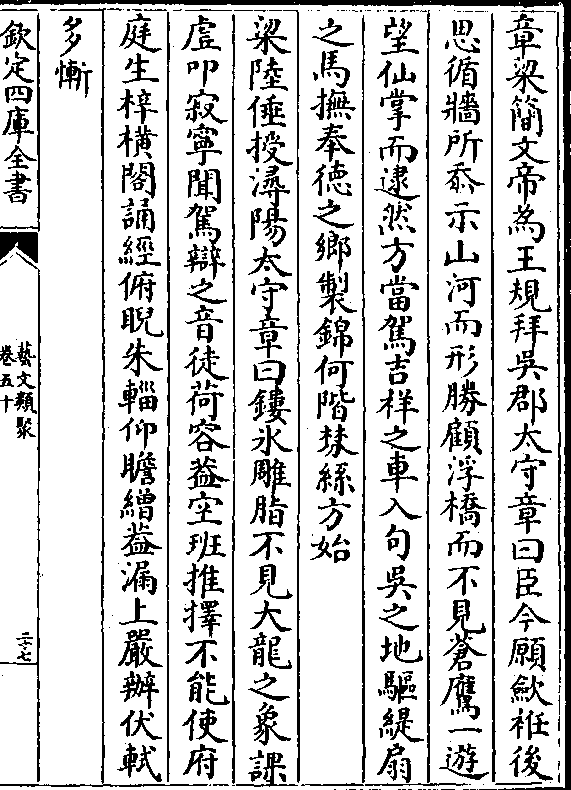 章梁簡文帝為王規拜吳郡太守章曰臣今願歛袵後
思循牆所忝示山河而形勝顧浮橋而不見蒼鷹一遊
望仙掌而逮然方當駕吉祥之車入句吳之地驅緹扇
之馬撫奉徳之鄉製錦何階棼絲方始
梁陸倕授潯陽太守章曰鏤氷雕脂不見大龍之象課
虛叩寂寧聞駕辯之音徒荷容葢空班推擇不能使府
庭生梓橫閣誦經俯睨朱轓仰瞻繒葢漏上嚴辦伏軾
多慚
欽定四庫全書
藝文類聚
卷五十
二十七